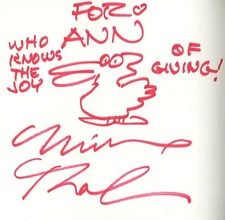 FOR
ANN
WHO
KNOWS
THE
JOY
OF
GIVING!